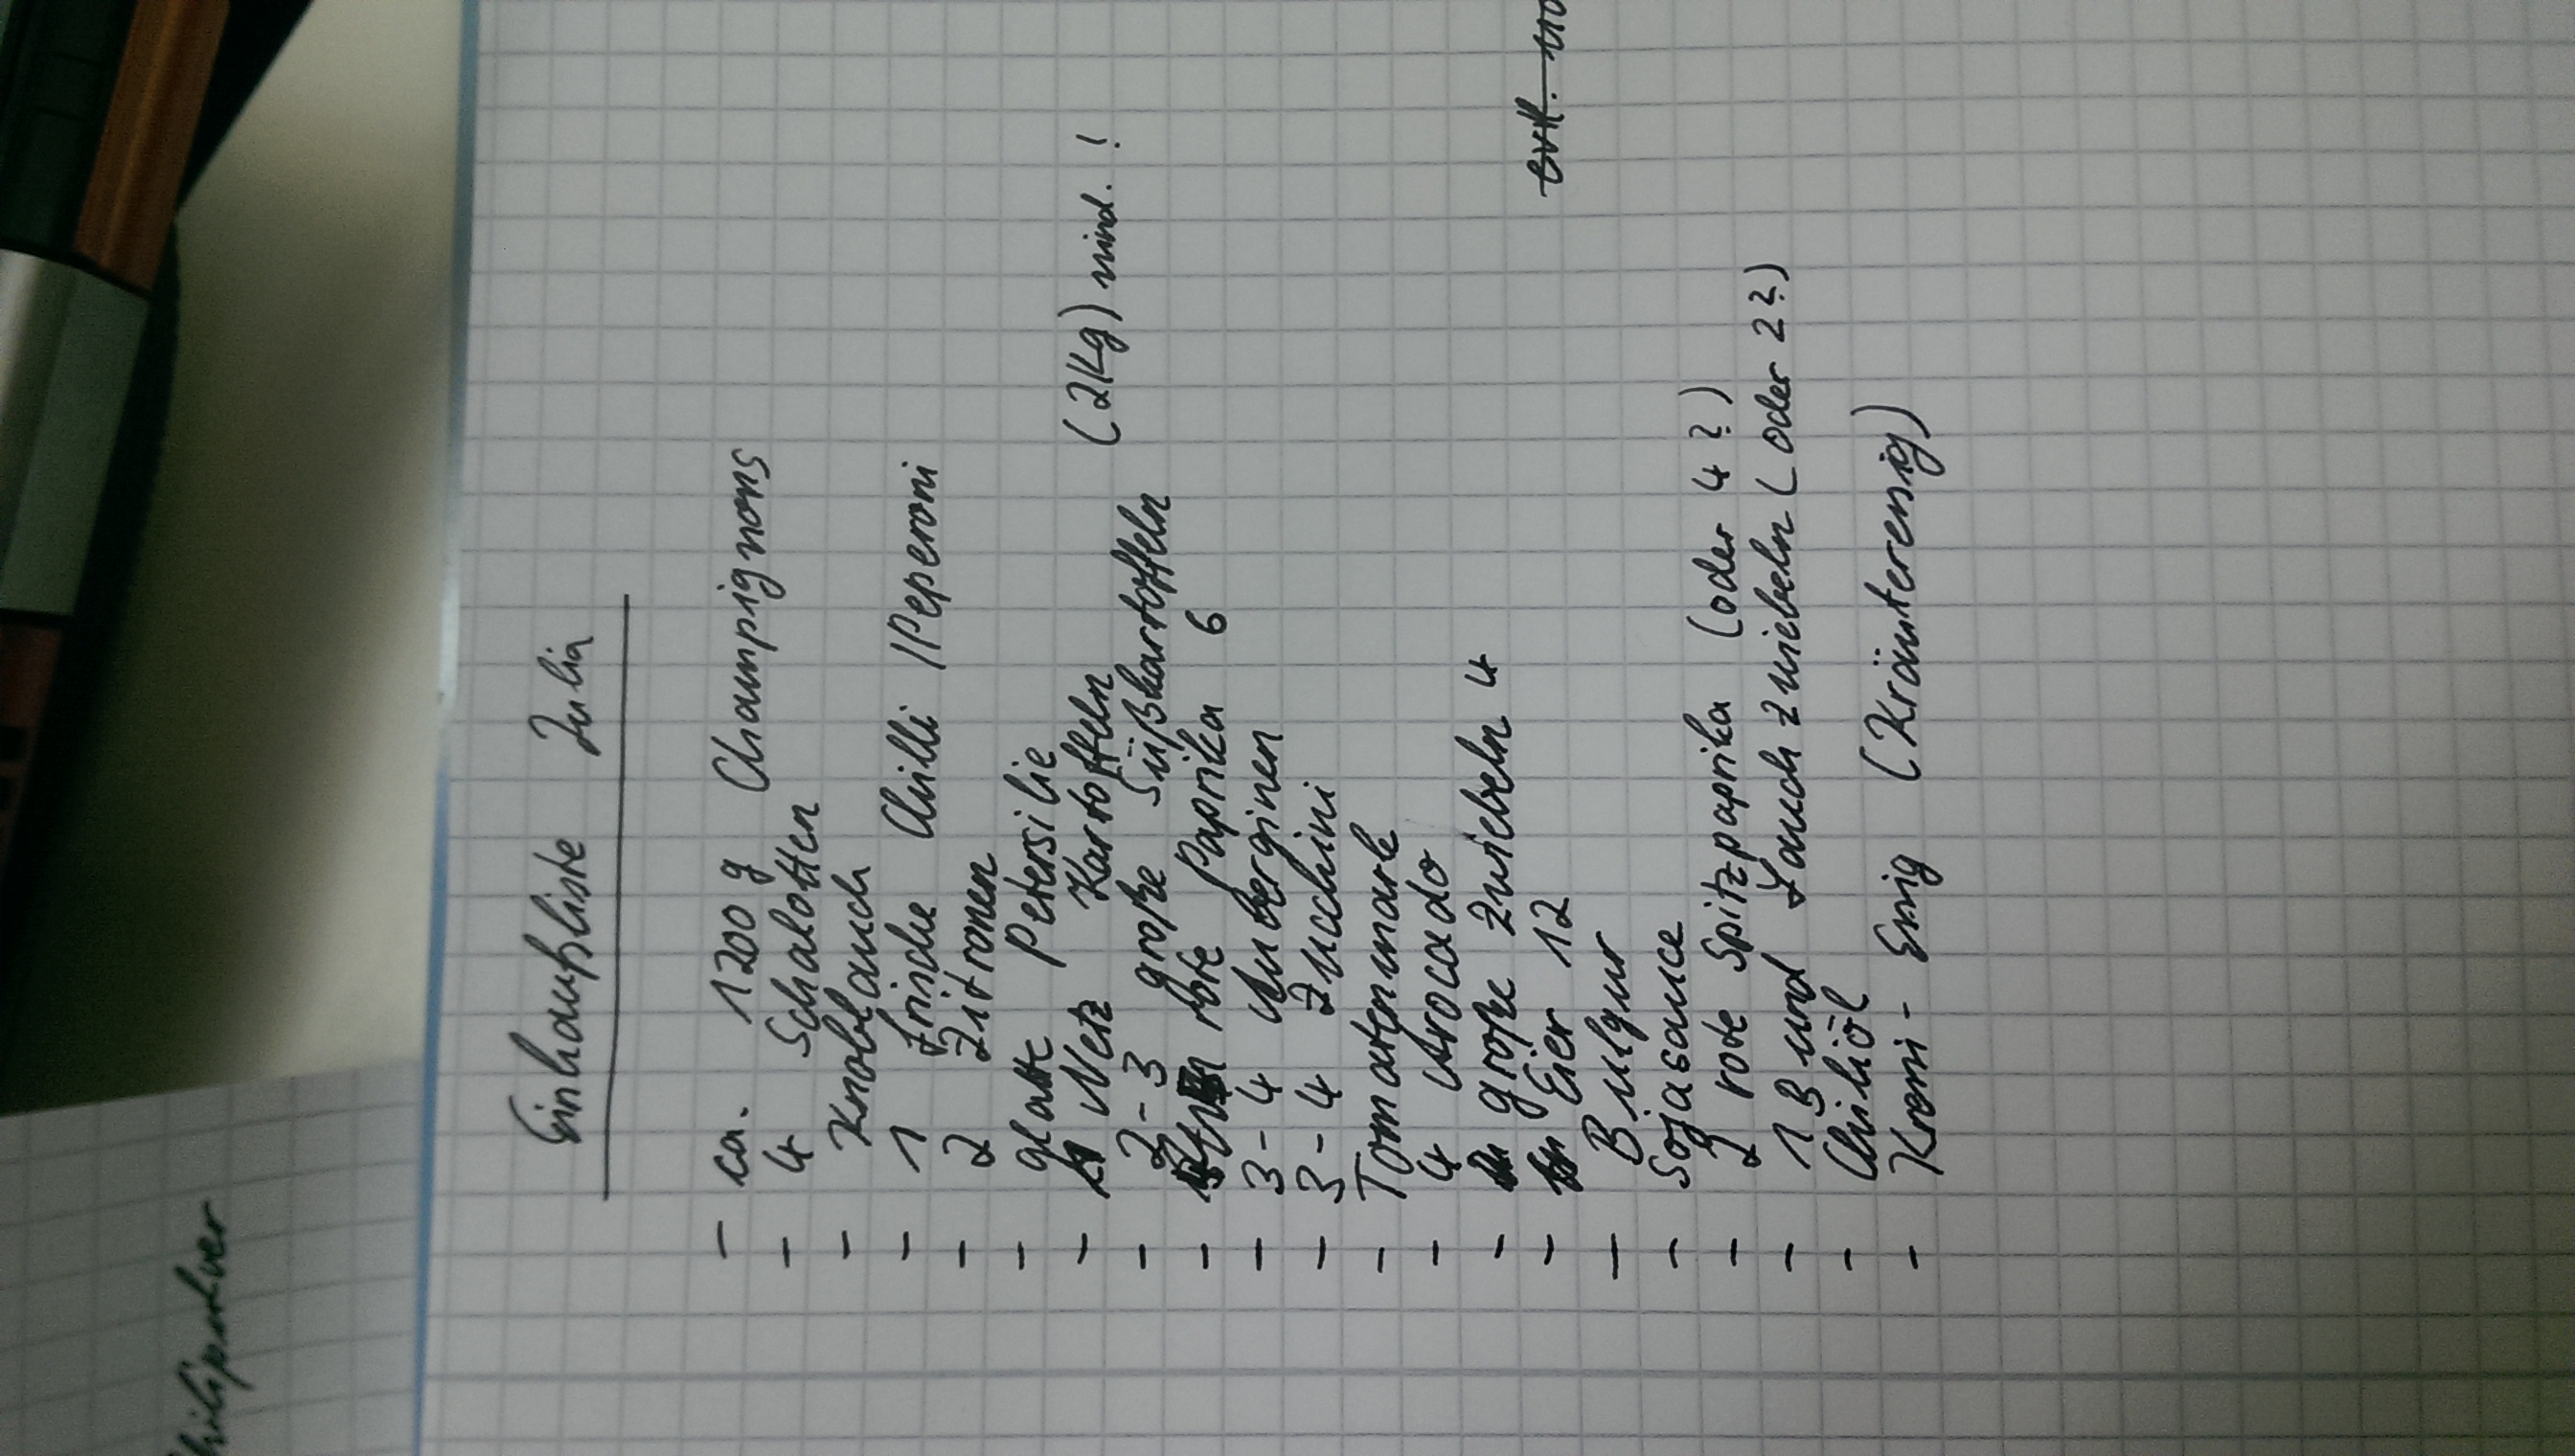 Einkaufsliste Julia
- ca. 1200 g Champignons
- 4 Schalotten
- Knoblauch
- 1 frische Chilli / Peperoni
- 2 Zitronen
- glatte Petersilie
- 1 Netz Kartoffeln (2Kg) mind.!
- 2-3 große Süßkartoffeln
- rote Paprika 6
- 3-4 Auberginen
- 3-4 Zucchini
- Tomatenmark
- 4 Avocado
- große Zwiebeln 4
- Eier 12
evtl.
- Bulgur
- Sojasauce
- 2 rote Spitzpaprika (oder 4?)
- 1 Bund Lauchzwiebeln (oder 2?)
- Chiliöl
- Kremi- Essig (Kräuteressig)